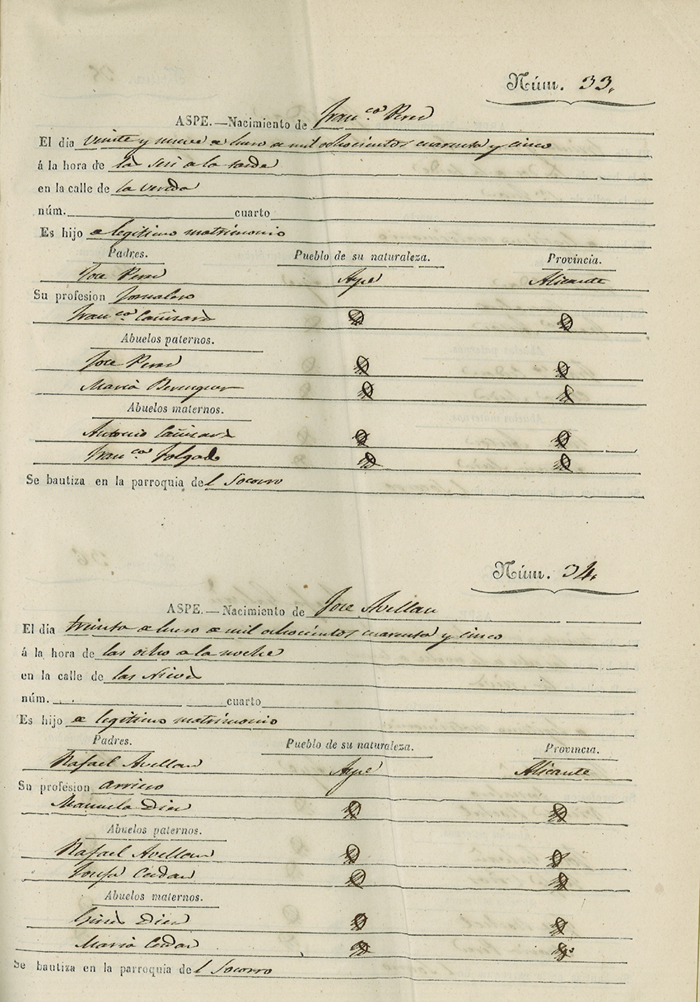 Núm. 33.
ASPE.—Nacimiento de Fran.co Perez
El dia veinte y nueve de Enero de mil ochocientos cuarenta y cinco
á la hora de las seis de la tarde
en la calle de la vereda
núm. cuarto
Es hijo de legitimo matrimonio
Padres. Pueblo de su naturaleza. Provincia.
Jose Perez Aspe Alicante
Su profesion Jornalero
Fran.ca Cañizares
Abuelos paternos.
Jose Perez
Maria Berenguer
Abuelos maternos.
Antonio Cañizares
Fran.ca Folgado
Se bautiza en la parroquia del Socorro
Núm. 34.
ASPE.—Nacimiento de Jose Avellan
El dia treinta de Enero de mil ochocientos cuarenta y cinco
á la hora de las ocho de la noche
en la calle de las Nieves
núm. cuarto
Es hijo de legitimo matrimonio
Padres. Pueblo de su naturaleza. Provincia.
Rafael Avellan Aspe Alicante
Su profesion arriero
Manuela Diez
Abuelos paternos.
Rafael Avellan
Josefa Cerdan
Abuelos maternos.
Gines Diez
Maria Cerdan
Se bautiza en la parroquia del Socorro